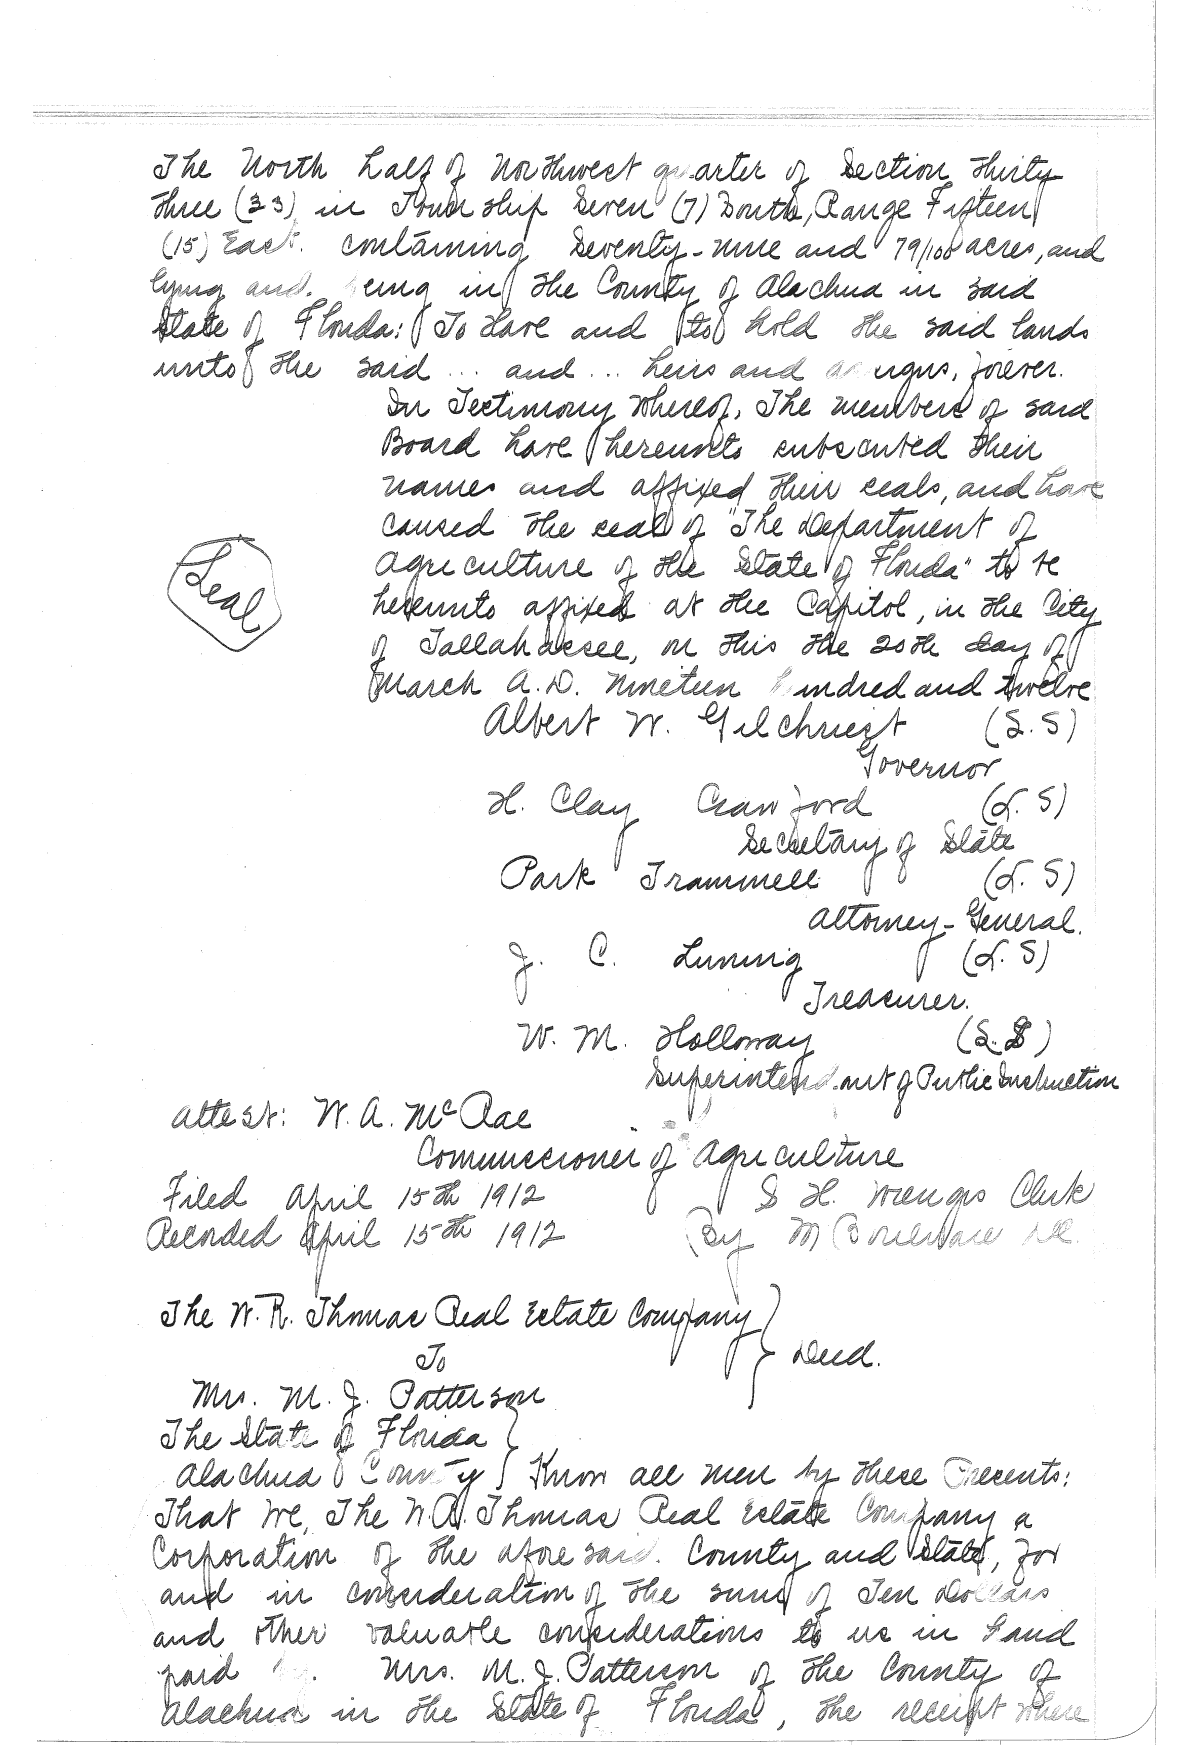 The North half of Northwest quarter of Section Thirty
three (33) in Township Seven (7) South, Range Fifteen
(15) East. containing Seventy-nine and 79/100 acres, and
lying and being in the County of Alachua in said
State of Florida: To Have and to hold the said lands
unto the said ... and ... heirs and assigns, forever.
In Testimony Whereof, The members of said
Board have hereunto subscribed their
names and affixed their seals, and have
caused the seal of "The Department of
Agriculture of the State of Florida" to be
Seal
hereunto affixed at the Capitol, in the City
of Tallahassee, on this the 20th day of
March A.D. Nineteen hundred and twelve
Albert W. Gilchrist (L.S)
Governor
H. Clay Crawford (L.S)
Secretary of State
Park Trammell (L.S)
Attorney-General.
J. C. Luning (L.S)
Treasurer.
W. M. Holloway (L.S)
Superintendent of Public Instruction
Attest: W. A. McRae
Commissioner of Agriculture
Filed April 15th 1912 S. H. Wienges Clerk
Recorded April 15th 1912 By M Boulware D.C.
The W. R. Thomas Real Estate Company
To } Deed.
Mrs. M. J. Patterson
The State of Florida
Alachua County } Know all men by these Presents:
That We, The W.R. Thomas Real Estate Company a
Corporation of the aforesaid County and State, for
and in consideration of the sum of Ten Dollars
and other valuable considerations to us in hand
paid by Mrs. M. J. Patterson of the County of
Alachua in the State of Florida, the receipt where